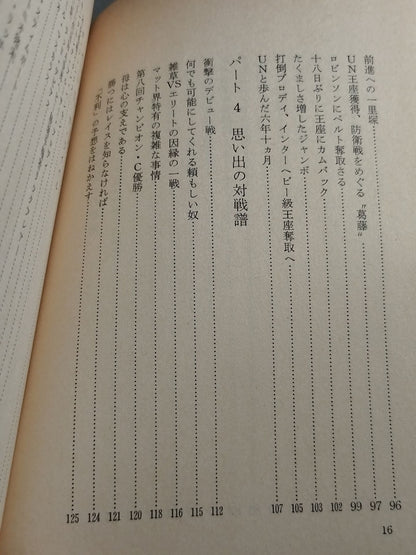 前進への一里塚 96
UN王座獲得、防衛戦をめぐる〝葛藤〟 97
ロビンソンにベルト奪取さる 99
十八日ぶりに王座にカムバック 102
たくましさ増したジャンボ 103
打倒ブロディ、インターヘビー級王座奪取へ 105
UNと歩んだ六年十ヵ月 107
パート 4 思い出の対戦譜
衝撃のデビュー戦 112
何でも可能にしてくれる頼もしい奴 115
雑草VSエリートの因縁の一戦 116
マット界特有の複雑な事情 118
第八回チャンピオン・C優勝 120
母は心の支えである 121
勝つにはレイスを知らなければ 124
〝不利〟の予想をはねかえす 125
16